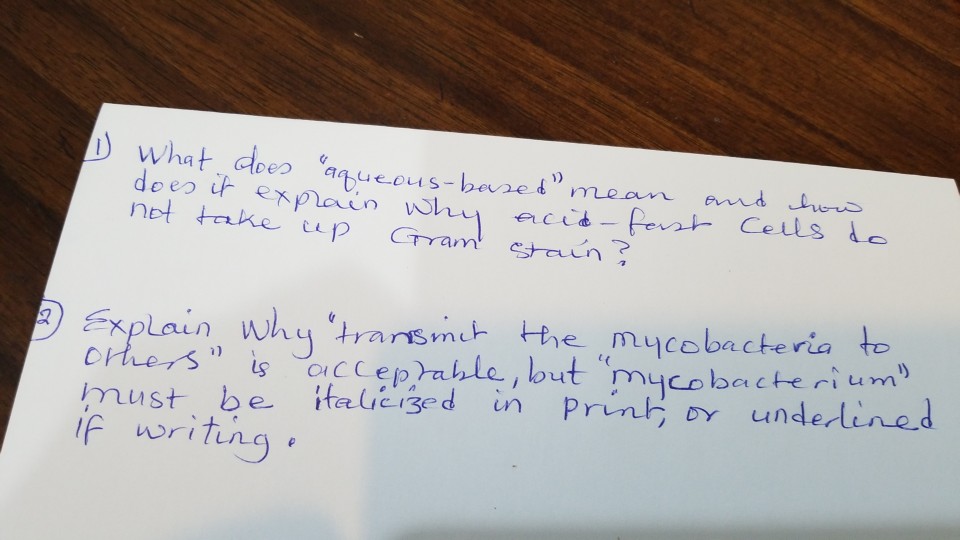 1) What does "aqueous-based" mean and how
does it explain why acid-fast cells do
not take up Gram stain?
2) Explain why "transmit the mycobacteria to
others" is acceptable, but "mycobacterium"
must be italicized in print, or underlined
if writing.